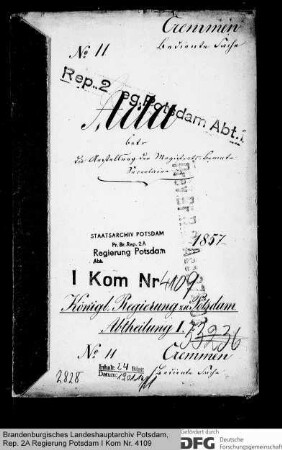 Cremmen
No 11
Bediente Sache
Rep. 2 eg. Potsdam Abt. I
Acta
betr
die Anstellung der Magistrats-Beamte
Secretaire
STAATSARCHIV POTSDAM
Pr. Br. Rep. 2A
Regierung Potsdam
Abt.
1857
I Kom Nr 4109
Königl. Regierung zu Potsdam
Abtheilung I.
No 11
Cremmen
Bediente Sache
Inhalt: 24 Blatt
Datum:
2828
Brandenburgisches Landeshauptarchiv Potsdam,
Rep. 2A Regierung Potsdam I Kom Nr. 4109
Gefördert durch
DFG Deutsche
Forschungsgemeinschaft